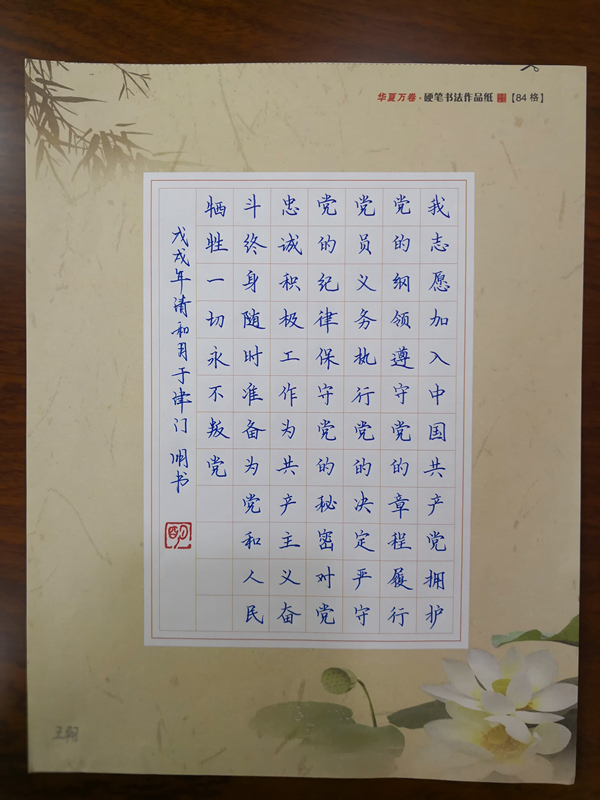 华夏万卷·硬笔书法作品纸【84格】
我志愿加入中国共产党拥护
党的纲领遵守党的章程履行
党员义务执行党的决定严守
党的纪律保守党的秘密对党
忠诚积极工作为共产主义奋
斗终身随时准备为党和人民
牺牲一切永不叛党
戊戌年清和月于津门 明书